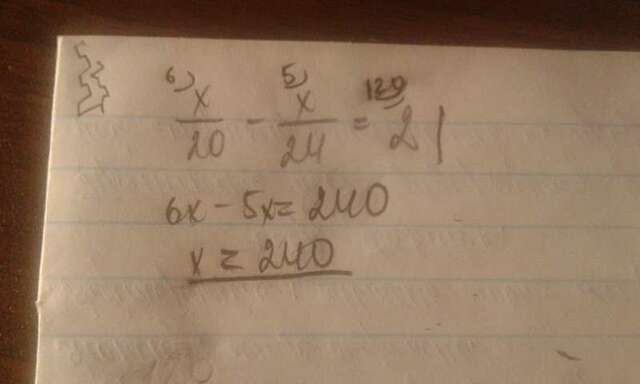 6) x/20 - 5) x/24 = 120) 2 |
6x - 5x = 240
x = 240